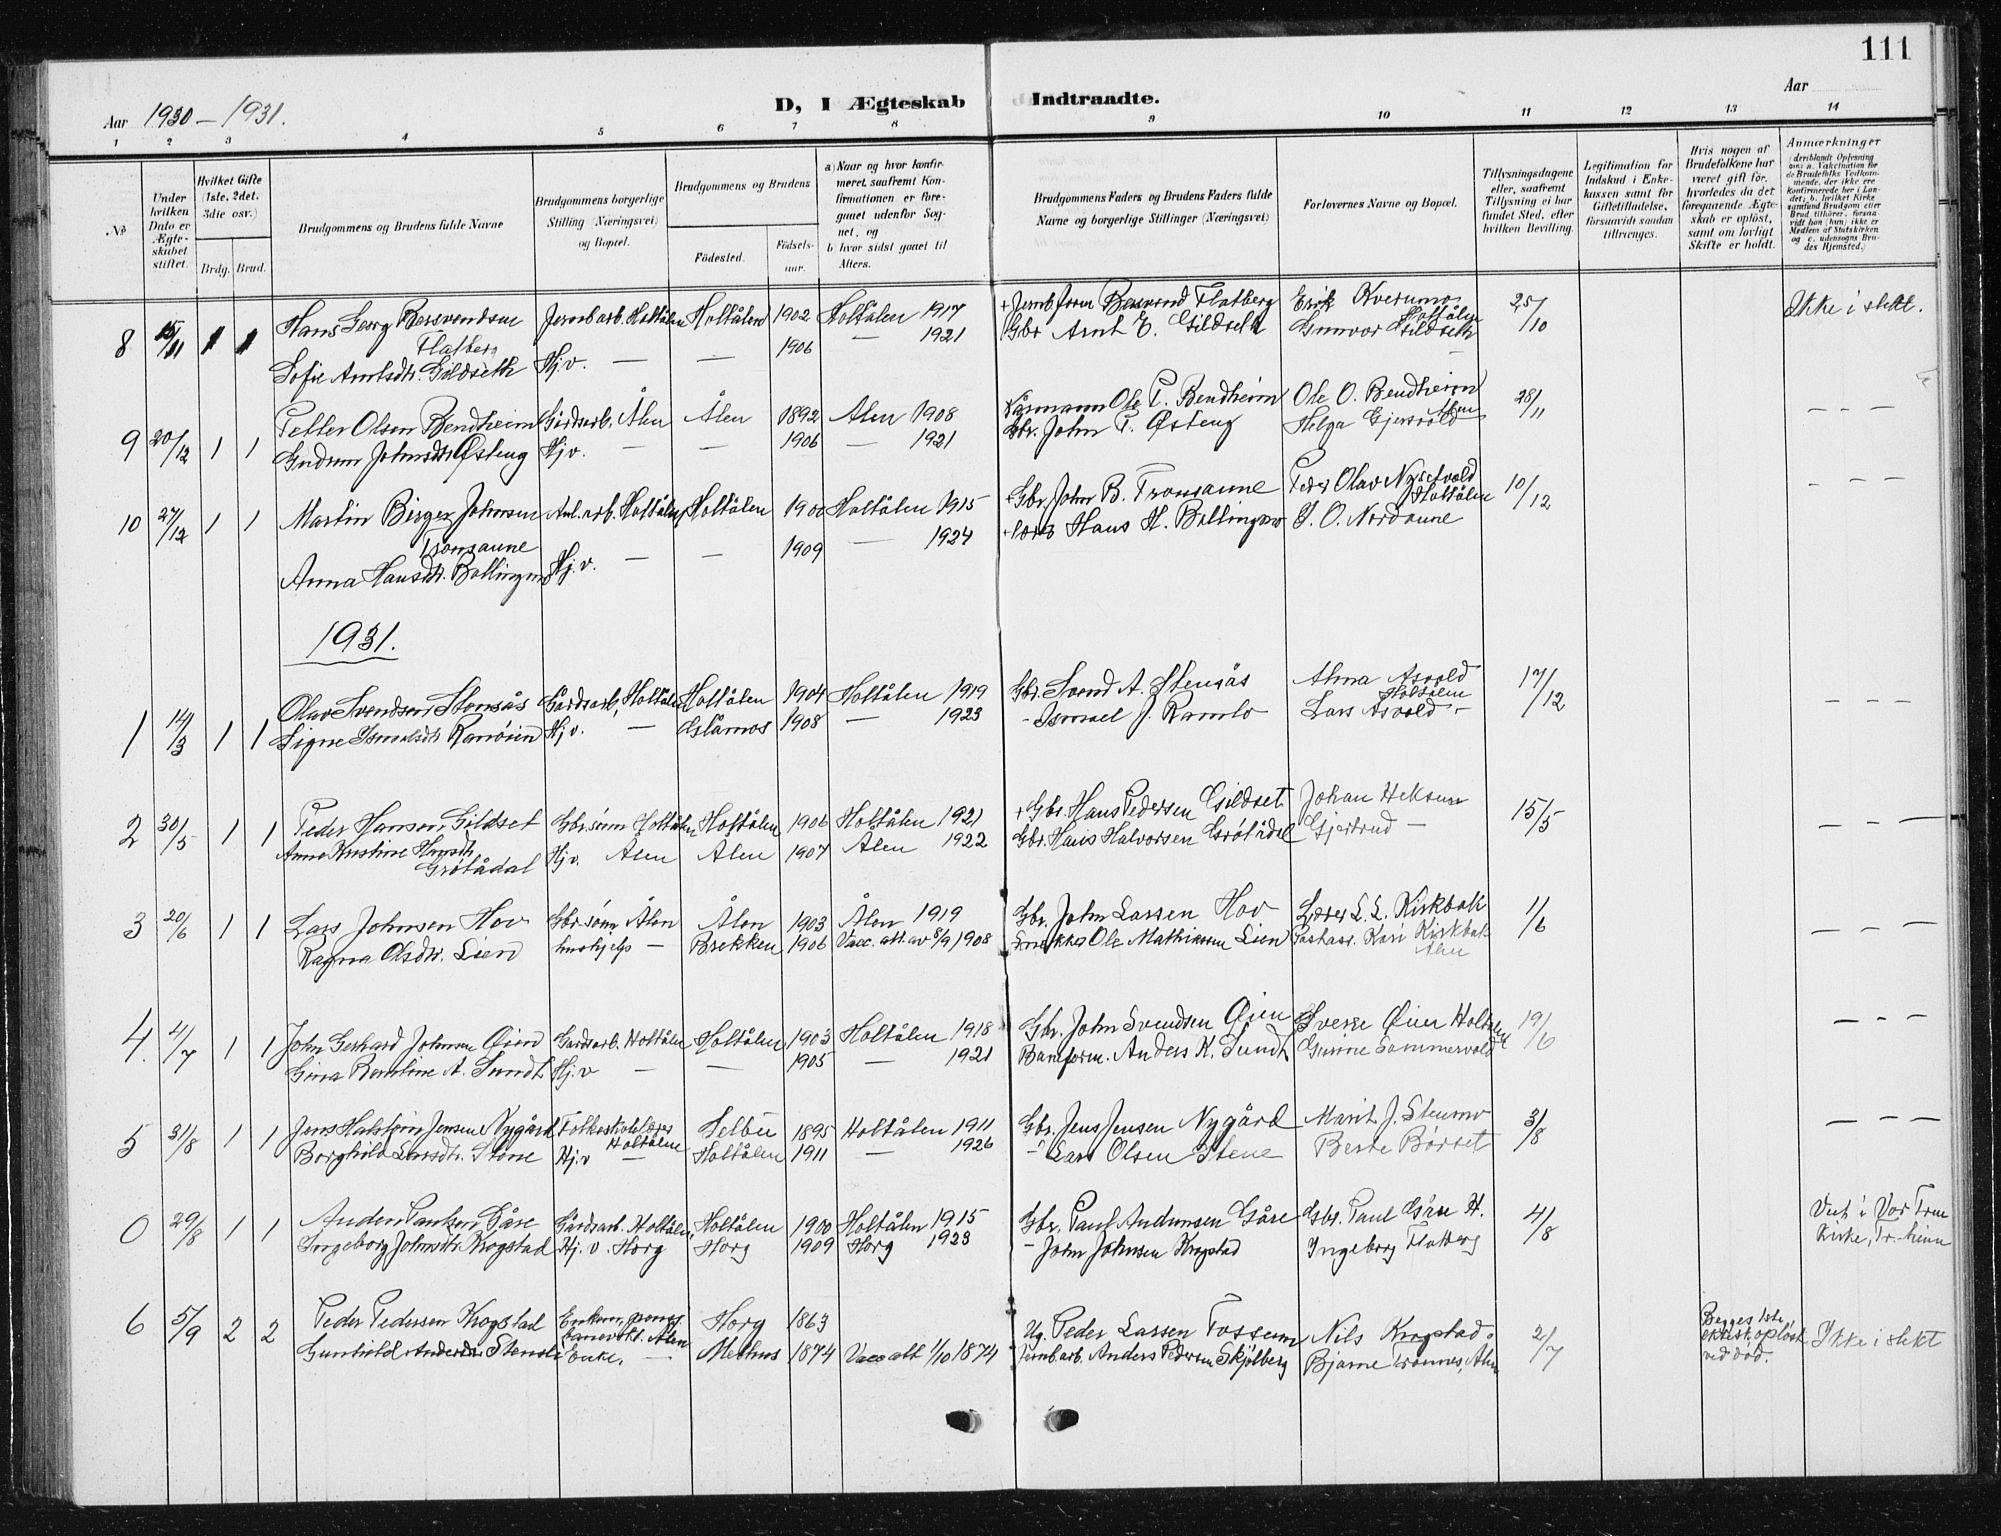 111
Aar 1930 – 1931.
D, I Ægteskab Indtraadte.
Aar
1 2 3 4 5 6 7 8 9 10 11 12 13 14
No
Under hvilken Dato er Ægteskabet stiftet.
Hvilket Gifte (1ste, 2det, 3die osv.)
Brdg. Brud.
Brudgommens og Brudens fulde Navne
Brudgommens borgerlige Stilling (Næringsvei) og Bopæl.
Brudgommens og Brudens
Fødested.
Fødselsaar.
a) Naar og hvor konfirmeret, saafremt Konfirmationen er foregaaet udenfor Sognet, og
b) hvor sidst gaaet til Alters.
Brudgommens Faders og Brudens Faders fulde Navne og borgerlige Stillinger (Næringsvei)
Forlovernes Navne og Bopæl.
Tillysningsdagene eller, saafremt Tillysning ei har fundet Sted, efter hvilken Bevilling.
Legitimation for Indskud i Enkekassen samt for Giftetilladelse, forsaavidt saadan tiltrænges.
Hvis nogen af Brudefolkene har været gift før, hvorledes da det foregaaende Ægteskab er opløst, samt om lovligt Skifte er holdt.
Anmærkninger
8 15/11 1 1 Hans Georg Bersvendsen Jernbarb. Holtålen Holtålen 1902 Holtålen 1917 + Jernb.form Bersvend Flatberg Erik Kverumo 25/10 Ikke i slekt.
Flatberg Holtålen
Sofie Arntsdtr. Gildseth Hj.v. — — 1906 — 1921 Gbr Arnt E. Gildseth Gunvor Gildseth —
9 20/12 1 1 Petter Olsen Bendheim Gårdsarb. Ålen Ålen 1892 Ålen 1908 Kårmann Ole P. Bendheim Ole O. Bendheim 28/11 — — —
Ålen
Gudrun Johnsdtr. Østeng Hjv. — — 1906 — 1921 Gbr. John P. Østeng Helga Gjersvold
10 27/12 1 1 Martin Birger Johnsen Anl.arb. Holtålen Holtålen 1900 Holtålen 1915 + Gbr. John B. Tronsaune Peder Olav Nysetvold 10/12 — — —
Tronsaune Holtålen
Anna Hansdtr. Bollingmo Hj.v. — — 1909 — 1924 Hans H. Bollingmo J. O. Nordaune
1931.
1 14/3 1 1 Olav Svendsen Stensås Gårdsarb. Holtålen Holtålen 1904 Holtålen 1919 Gbr. Svend A. Stensås Alma Asvold 17/12 — — —
Holtålen
Signe Ismalsdtr. Ramlo Hj.v. — Glåmos 1908 — 1923 — Ismael J. Ramlo Lars Asvold —
2 30/5 1 1 Peder Hansen Gildset Gbr.sønn Holtålen Holtålen 1906 Holtålen 1921 + Gbr. Hans Pedersen Gildset Johan Heksem 15/5 — — —
Anna Kristine Hansdtr. Grøtådal Hj.v. Ålen Ålen 1907 Ålen 1922 Gbr. Hans Halvorsen Grøtådal Gjertrud —
3 20/6 1 1 Lars Johnsen Hov Gbr.sønn Ålen Ålen 1903 Ålen 1919 Gbr. John Larsen Hov Lærer L. L. Kirkbak 1/6 — — —
Ragna Olsdtr. Lien hushjelp — Brekken 1906 Vacc. att. av 8/9 1908 Snekker Ole Mathiassen Lien Kari Kirkbak
Ålen
4. 4/7 1 1 John Gerhard Johnsen Øien Gårdsarb. Holtålen Holtålen 1903 Holtålen 1918 Gbr. John Svendsen Øien Sverre Øien Holtålen 19/6 — — —
Gina A. Sundt Hj.v — — 1905 — 1921 Baneform. Anders K. Sundt Gunne Sommervold
5 31/8 1 1 Jens Halstein Jensen Nygård Folkeskolelærer Holtålen Selbu 1895 Holtålen 1911 Gbr. Jens Jensen Nygård Marit J. Stenmo 3/8 — — —
Borghild Larsdtr. Stene Hj.v — Holtålen 1911 — 1926 — Lars Olsen Stene Børset
0 29/8 1 1 Anders Paulsen Gåre Gårdsarb. Holtålen Holtålen 1900 Holtålen 1915 Gbr. Paul Andersen Gåre Gbr. Paul Gåre H. 4/8 Viet i Vor Frue
Ingeborg Johnsdtr. Krogstad Hj.v. Horg Horg 1909 Horg 1923 — John Johnsen Krogstad Ingeborg Flatberg Kirke, Tr.heim
6 5/9 2 2 Peder Pedersen Krogstad Enkem., pens. banevokt. Ålen Horg 1863 Ug. Peder Larsen Fossum Nils Krogstad 2/7 Begges 1ste ektesk. opløst ved død. Ikke i slekt
Gunhild Andersdtr. Stensli Enke. — Melhus 1874 Vacc att 1/10 1874 Jernb.arb. Anders Pedersen Skjølberg Bjarne Trønnes, Ålen